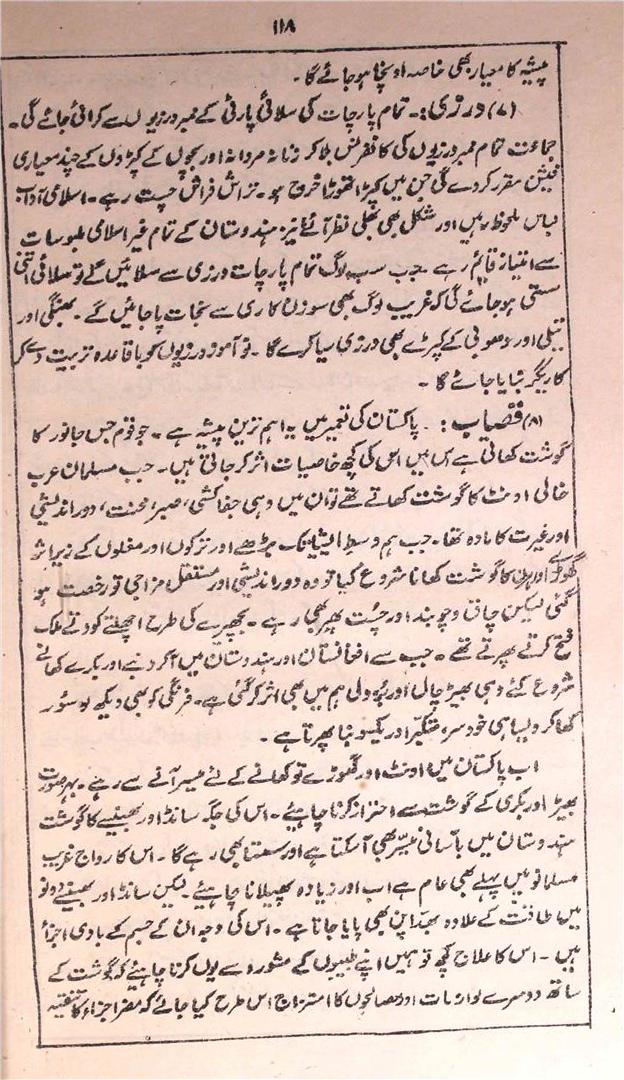 ۱۱۸
پیشہ کا معیار بھی خاصہ اونچا ہو جائے گا۔
(۷) درزی:۔ تمام پارچات کی سلائی پارٹی کے ممبر درزیوں سے کرائی جائے گی۔
جماعت تمام ممبر درزیوں کی کانفرنس بلا کر زنانہ مردانہ اور بچوں کے کپڑوں کے چند معیاری
فیشن مقرر کر دے گی جن میں کپڑا تھوڑا خرچ ہو۔ تراش خراش چست رہے۔ اسلامی آداب
لباس ملحوظ رہیں اور شکل بھی بھلی نظر آئے نیز ہندوستان کے تمام غیر اسلامی ملبوسات
سے امتیاز قائم رہے۔ جب سب لوگ تمام پارچات درزی سے سلائیں گے تو سلائی اتنی
سستی ہو جائے گی کہ غریب لوگ بھی سوزن کاری سے نجات پا جائیں گے۔ بھنگی اور
تیلی اور دھوبی کے کپڑے بھی درزی سیا کرے گا۔ نو آموز درزیوں کو باقاعدہ تربیت دے کر
کاریگر بنایا جائے گا۔
(۸) قصاب:۔ پاکستان کی تعمیر میں یہ اہم ترین پیشہ ہے۔ جو قوم جس جانور کا
گوشت کھاتی ہے اس میں اسی کی کچھ خاصیات اثر کر جاتی ہیں۔ جب مسلمان عرب
خالی اونٹ کا گوشت کھاتے تھے تو ان میں وہی جفاکشی، صبر، محنت، دور اندیشی
اور غیرت کا مادہ تھا۔ جب ہم وسط ایشیا تک بڑھے اور ترکوں اور مغلوں کے زیر اثر
گھوڑے اور ہرن کا گوشت کھانا شروع کیا تو وہ دور اندیشی اور مستقل مزاجی تو رخصت ہو
گئی لیکن چاق و چوبند اور چست پھر بھی رہے۔ بچھیرے کی طرح اچھلتے کودتے ملک
فتح کرتے پھرتے تھے۔ جب سے افغانستان اور ہندوستان میں آکر دنبے اور بکرے کھانے
شروع کئے وہی بھیڑ چالی اور بُزدلی ہم میں بھی اثر کر گئی ہے۔ فرنگی کو بھی دیکھ لو سُور
کھا کر ویسا ہی خود سر، متکبر اور یکسو بنا پھرتا ہے۔
اب پاکستان میں اونٹ اور گھوڑے تو کھانے کے لئے میسر آنے سے رہے۔ بہر صورت
بھیڑ اور بکری کے گوشت سے احتراز کرنا چاہیئے۔ اس کی جگہ سانڈ اور بھینسے کا گوشت
ہندوستان میں بآسانی میسّر بھی آ سکتا ہے اور سستا بھی رہے گا۔ اس کا رواج غریب
مسلمانوں میں پہلے بھی عام ہے اب اور زیادہ پھیلانا چاہیئے۔ لیکن سانڈ اور بھینسے دونو
میں طاقت کے علاوہ بھدّاپن بھی پایا جاتا ہے۔ اس کی وجہ ان کے جسم کے بادی اجزا
ہیں۔ اس کا علاج کچھ تو ہمیں اپنے طبیبوں کے مشورہ سے یوں کرنا چاہیئے کہ گوشت کے
ساتھ دوسرے لوازمات اور مصالحوں کا امتزاج اس طرح کیا جائے کہ مضر اجزاء کا تنقیہ